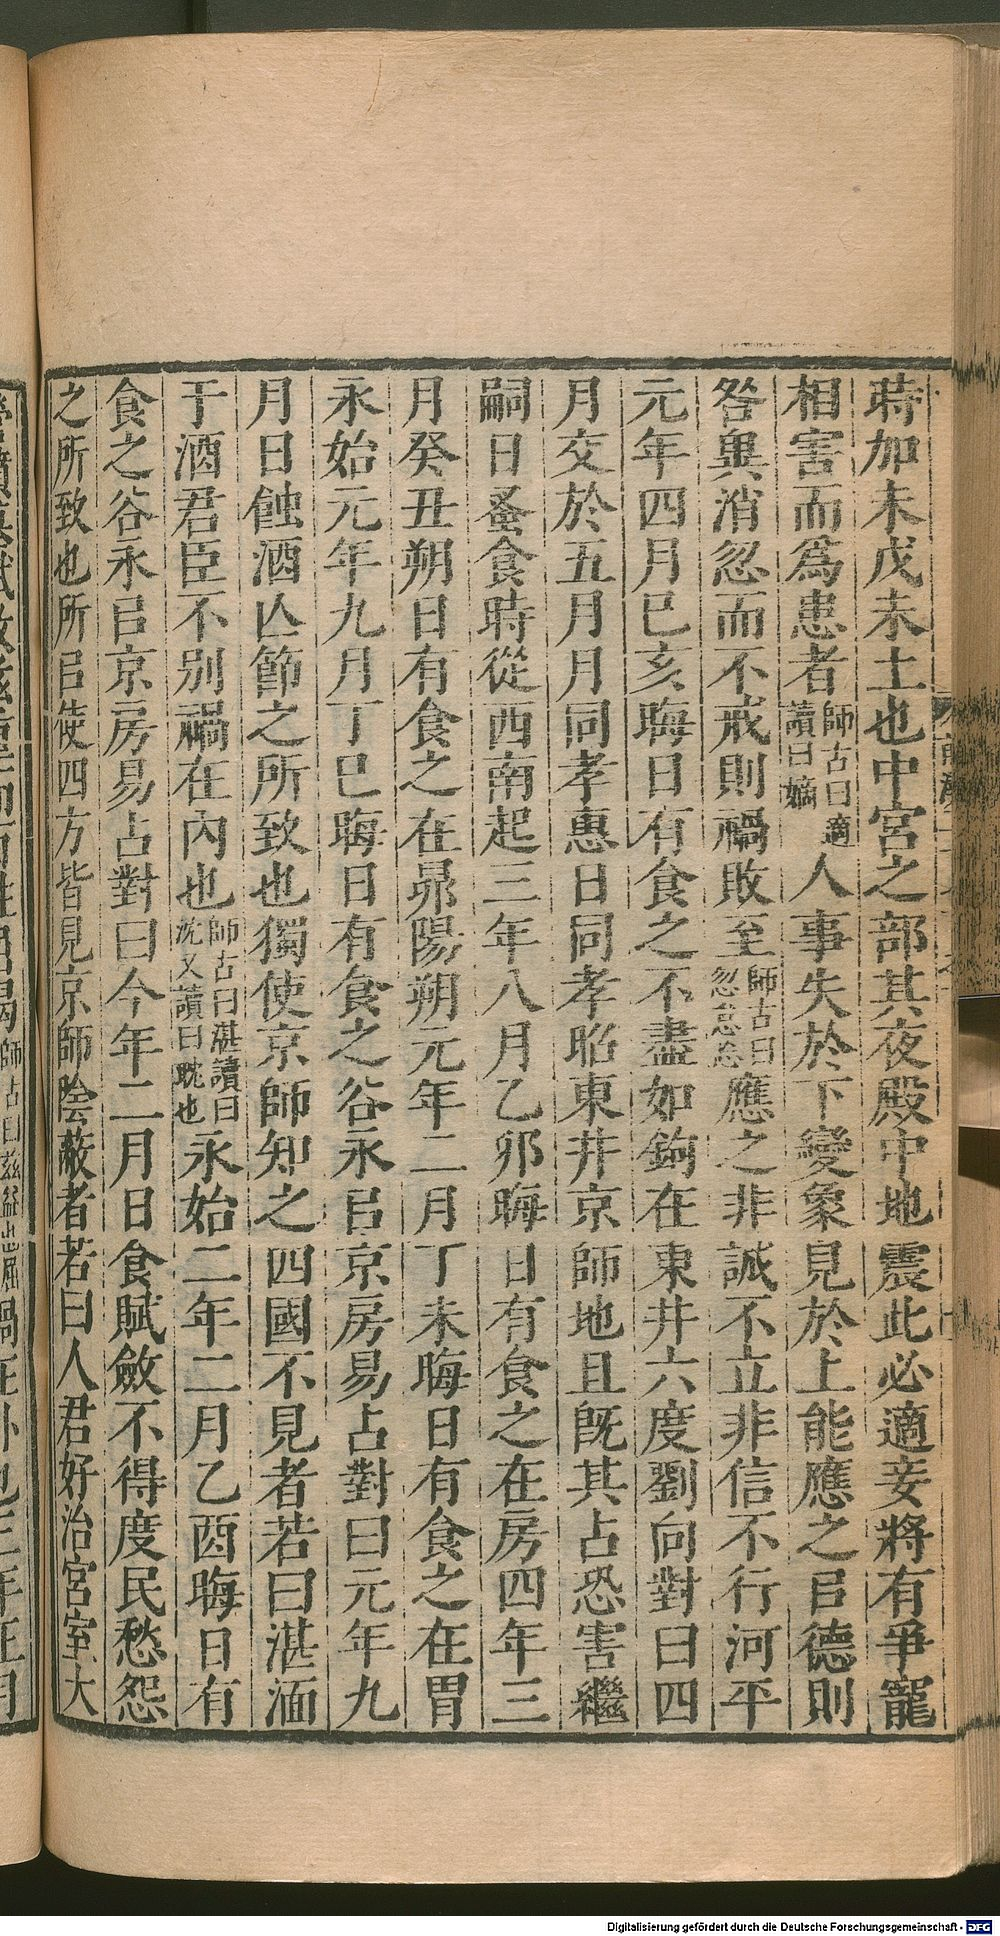 時加未戊未土也中宮之部其夜殿中地震此必適妾將有爭寵
相害而爲患者師古曰適讀曰嫡人事失於下變象見於上能應之㠯德則
咎異消忽而不戒則禍敗至師古曰忽怠忘應之非誠不立非信不行河平
元年四月己亥晦日有食之不盡如鉤在東井六度劉向對曰四
月交於五月月同孝惠日同孝昭東井京師地且旣其占恐害繼
嗣日蚤食時從西南起三年八月乙卯晦日有食之在房四年三
月癸丑朔日有食之在昴陽朔元年二月丁未晦日有食之在胃
永始元年九月丁巳晦日有食之谷永㠯京房易占對曰元年九
月日蝕酒亾節之所致也獨使京師知之四國不見者若曰湛湎
于酒君臣不別禍在內也師古曰湛讀曰沈又讀曰耽也永始二年二月乙酉晦日有
食之谷永㠯京房易占對曰今年二月日食賦斂不得度民愁怨
之所致也所㠯使四方皆見京師陰蔽者若曰人君好治宮室大
Digitalisierung gefördert durch die Deutsche Forschungsgemeinschaft - DFG